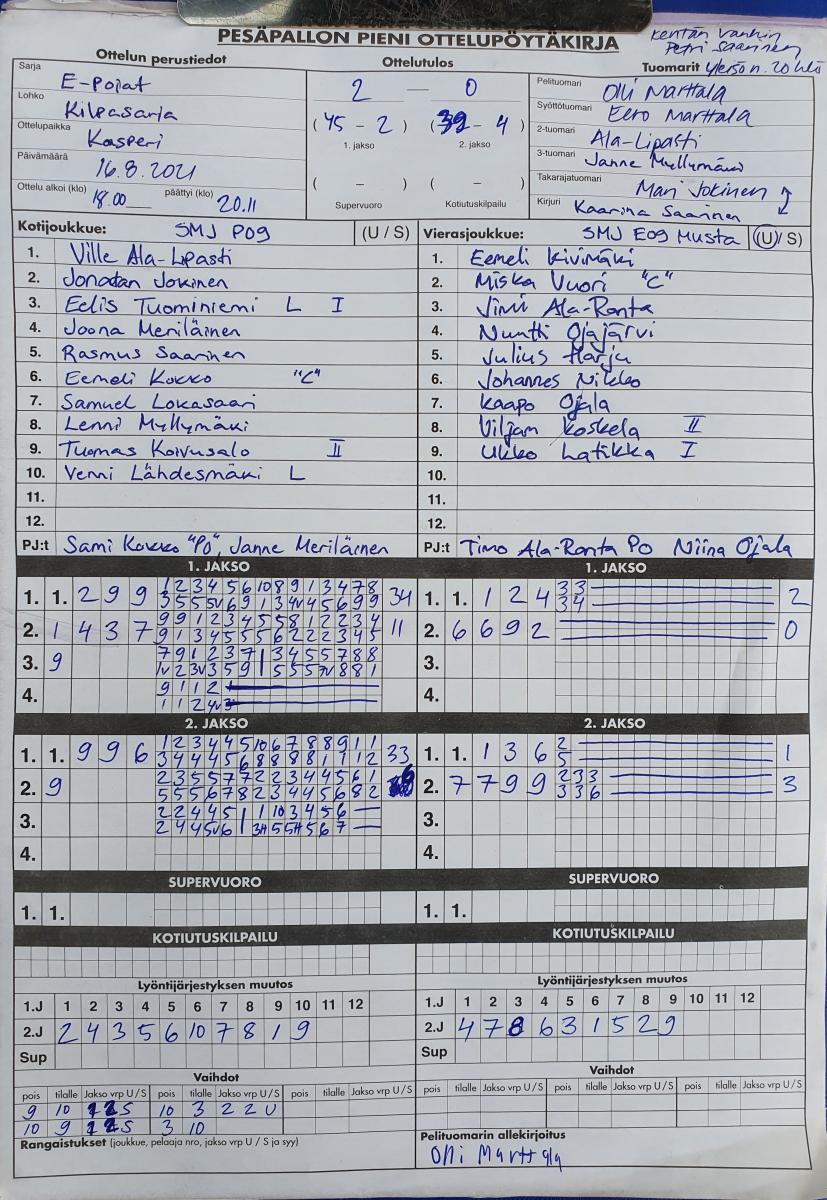 PESÄPALLON PIENI OTTELUPÖYTÄKIRJA
Kentän vanhin
Petri Saarinen
Yleisö n. 20 hlö
Ottelun perustiedot
Sarja E-Pojat
Lohko Kilpasarja
Ottelupaikka Kasperi
Päivämäärä 16.8.2021
Ottelu alkoi (klo) 18.00 päättyi (klo) 20.11
Ottelutulos
2 — 0
(45 - 2) (39 - 4)
1. jakso 2. jakso
( – ) ( – )
Supervuoro Kotiutuskilpailu
Tuomarit
Pelituomari Olli Marttala
Syöttötuomari Eero Marttala
2-tuomari Ala-Lipasti
3-tuomari Janne Myllymäki
Takarajatuomari Mari Jokinen
Kirjuri Kaarina Saarinen
Kotijoukkue: SMJ P09 (U / S)
1. Ville Ala-Lipasti
2. Jonatan Jokinen
3. Eelis Tuominiemi L I
4. Joona Meriläinen
5. Rasmus Saarinen
6. Eemeli Kokko "C"
7. Samuel Lokasaari
8. Lenni Myllymäki
9. Tuomas Koivusalo II
10. Venni Lähdesmäki L
11.
12.
PJ:t Sami Kokko "PO", Janne Meriläinen
Vierasjoukkue: SMJ E09 Musta (U / S)
1. Eemeli Kivimäki
2. Miska Vuori "C"
3. Jimi Ala-Ranta
4. Nuutti Ojajärvi
5. Julius Harju
6. Johannes Nikko
7. Kaapo Ojala
8. Viljam Koskela II
9. Ukko Latikka I
10.
11.
12.
PJ:t Timo Ala-Ranta PO Niina Ojala
1. JAKSO
1. 1. 2 9 9 1 2 3 4 5 6 10 8 9 1 3 4 7 8 34
2. 1 4 3 7 9 9 1 2 3 4 5 5 8 1 2 2 3 4 11
9 1 3 4 5 5 5 6 2 2 2 3 4 5
3. 9
4.
9 1 1 2
1. JAKSO
1. 1. 1 2 4 3 3 2
3 4
2. 6 6 9 2 0
3.
4.
2. JAKSO
1. 1. 9 9 6 1 2 3 4 4 5 10 6 7 8 8 9 1 1 33
2. 9 2 3 5 5 7 7 2 2 3 4 4 5 6 1
5 5 5 6 7 8 2 3 4 4 5 6 8 2
3.
4.
2. JAKSO
1. 1. 1 3 6 2 1
5
2. 7 7 9 9 2 3 3 3
3 3 6
3.
4.
SUPERVUORO
1. 1.
SUPERVUORO
1. 1.
KOTIUTUSKILPAILU
KOTIUTUSKILPAILU
Lyöntijärjestyksen muutos
1.J 1 2 3 4 5 6 7 8 9 10 11 12
2.J 2 4 3 5 6 10 7 8 1 9
Sup
Lyöntijärjestyksen muutos
1.J 1 2 3 4 5 6 7 8 9 10 11 12
2.J 4 7 8 6 3 1 5 2 9
Sup
Vaihdot
pois tilalle Jakso vrp U / S pois tilalle Jakso vrp U / S pois tilalle Jakso vrp U / S
9 10 1 2 S 10 3 2 2 U
10 9 1 2 S 3 10
Vaihdot
pois tilalle Jakso vrp U / S pois tilalle Jakso vrp U / S pois tilalle Jakso vrp U / S
Rangaistukset (joukkue, pelaaja nro, jakso vrp U / S ja syy)
Pelituomarin allekirjoitus
Olli Marttala